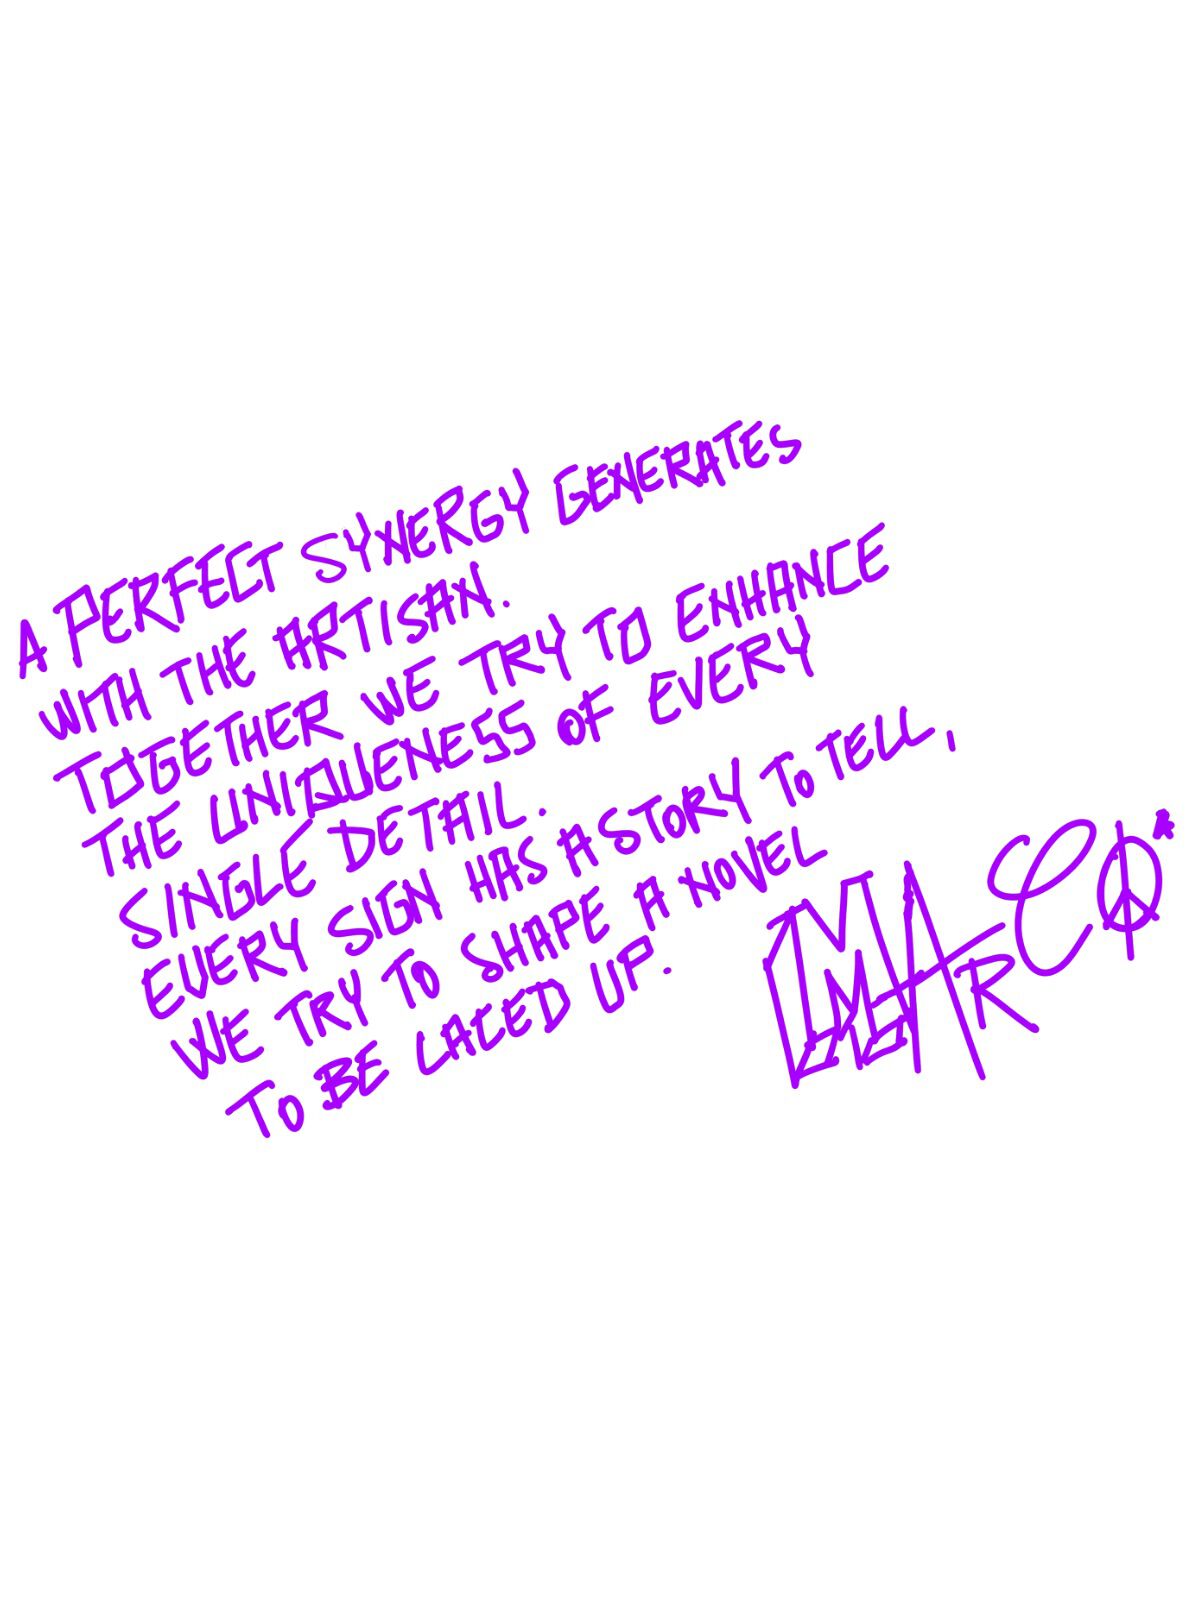 A PERFECT SYNERGY GENERATES
WITH THE ARTISAN.
TOGETHER WE TRY TO ENHANCE
THE UNIQUENESS OF EVERY
SINGLE DETAIL.
EVERY SIGN HAS A STORY TO TELL,
WE TRY TO SHAPE A NOVEL
TO BE LACED UP.
MARCO*